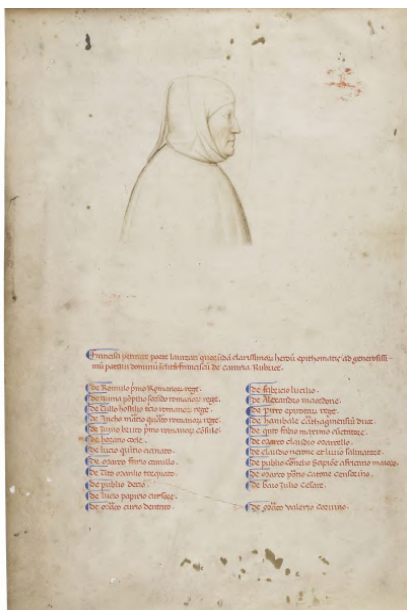 Francisci petrarce poete laureati quorūdā clarissimoꝝ heroū epithomatis ad generosissi-
mū patauī dominū Francisci de carraria Rubrice.
de Romulo pmo Romanoꝝ rege.
de numa pōpilio secūdo romanoꝝ rege.
de Tullo hostilio tcio romanoꝝ rege.
de Ancho marcio quarto romanoꝝ rege.
de Junio bruto pmo romanoꝝ cōsule.
de horatio cocle.
de lucio quītio cīcinato.
de marco furio camillo.
de Tito manlio torquato.
de publio decio.
de lucio papirio cursore.
de marco curio dentato.
de fabricio lucinio.
de Alexandro macedone.
de Pirro epirotaꝝ rege.
de hanibale cartaginensiū duce.
de quīto fabio maximo cūctatore.
de marco claudio marcello.
de claudio nerone et liuio salinatore.
de publio cornelio scipiōe africano maiore.
de marco portio catone censorino.
de Gaio Julio cesare.
de marco valerio coruino.